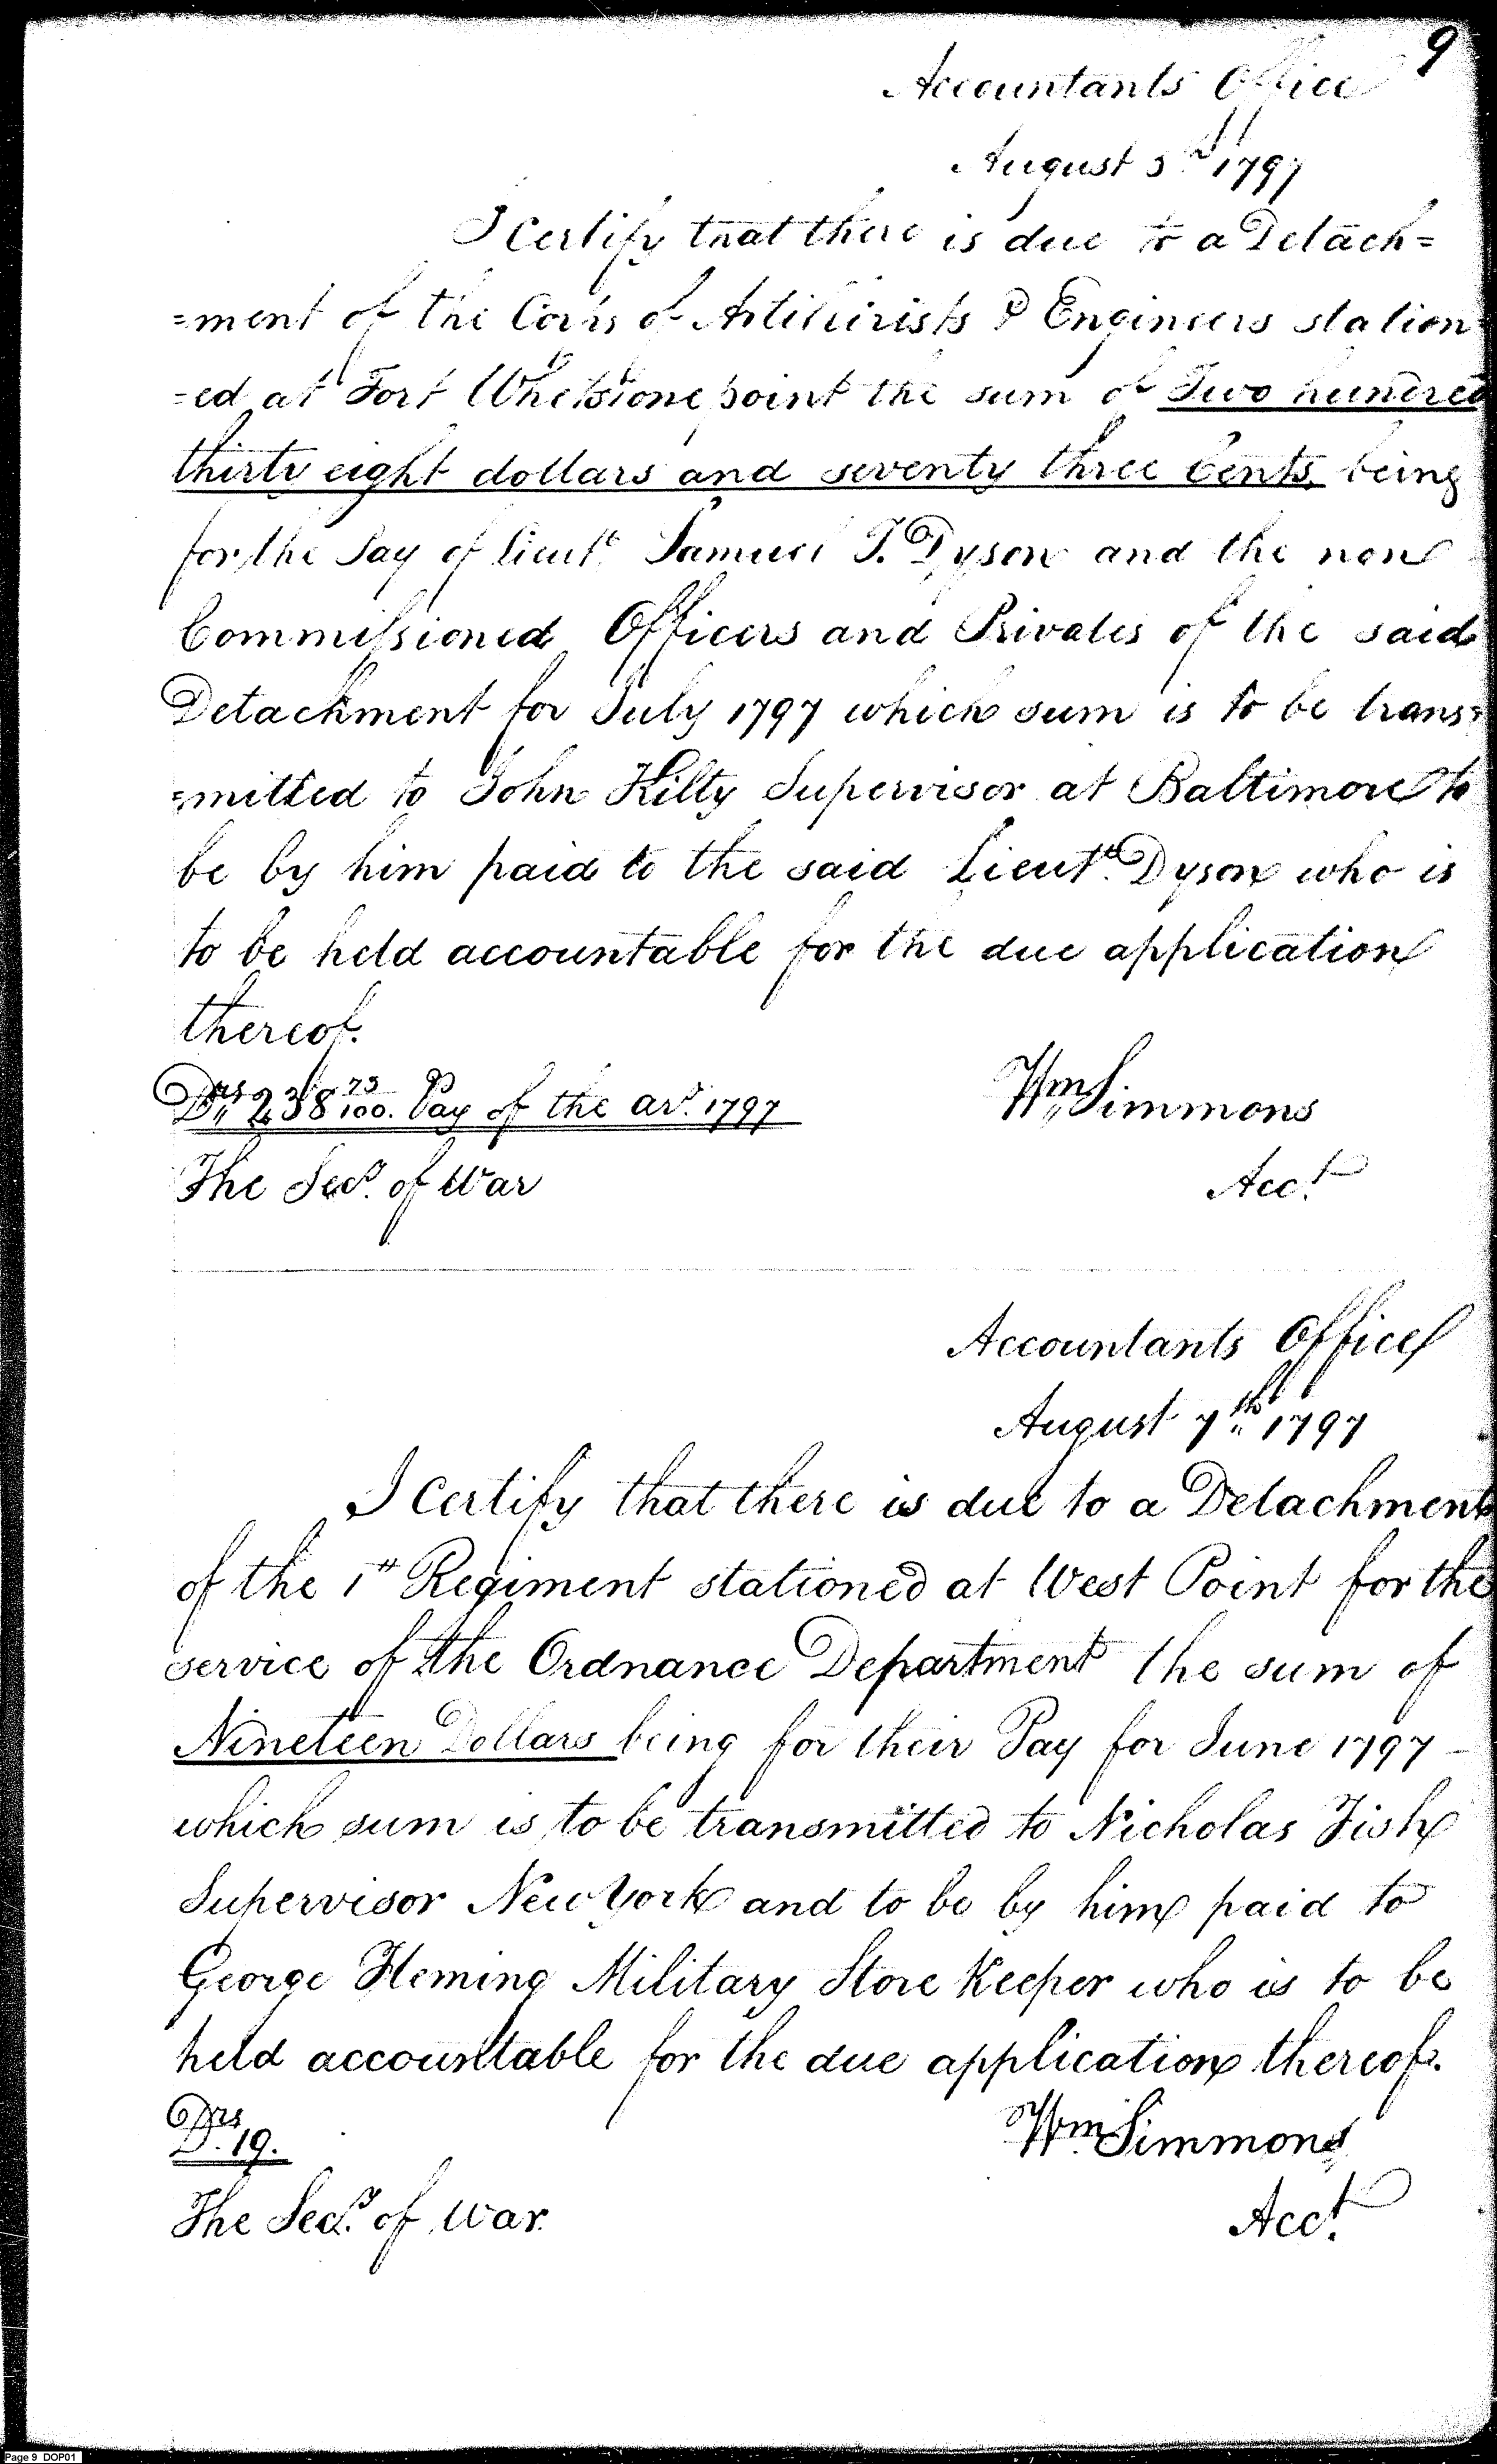 9
Accountants Office
August 3d 1797
I Certify that there is due to a Detach=
=ment of the Corps of Artillerists & Engineers station=
=ed at Fort Whetstone point the sum of Two hundred
thirty eight dollars and seventy three Cents, being
for the Pay of Lieutt. Samuel T. Dyson and the non
Commissioned Officers and Privates of the said
Detachment for July 1797 which sum is to be trans=
=mitted to John Kilty Supervisor at Baltimore to
be by him paid to the said Lieutt. Dyson who is
to be held accountable for the due application
thereof.
Drs 238 73/100. Pay of the ar. 1797
Wm Simmons
The Secy. of War
Acct.
Accountants Office
August 7th 1797
I Certify that there is due to a Detachment
of the 1st Regiment stationed at West Point for the
service of the Ordnance Department the sum of
Nineteen Dollars being for their Pay for June 1797
which sum is to be transmitted to Nicholas Fish
Supervisor New York and to be by him paid to
George Fleming Military Store Keeper who is to be
held accountable for the due application thereof.
Drs. 19.
Wm Simmons
The Secy. of War.
Acct.
Page 9 DOP01